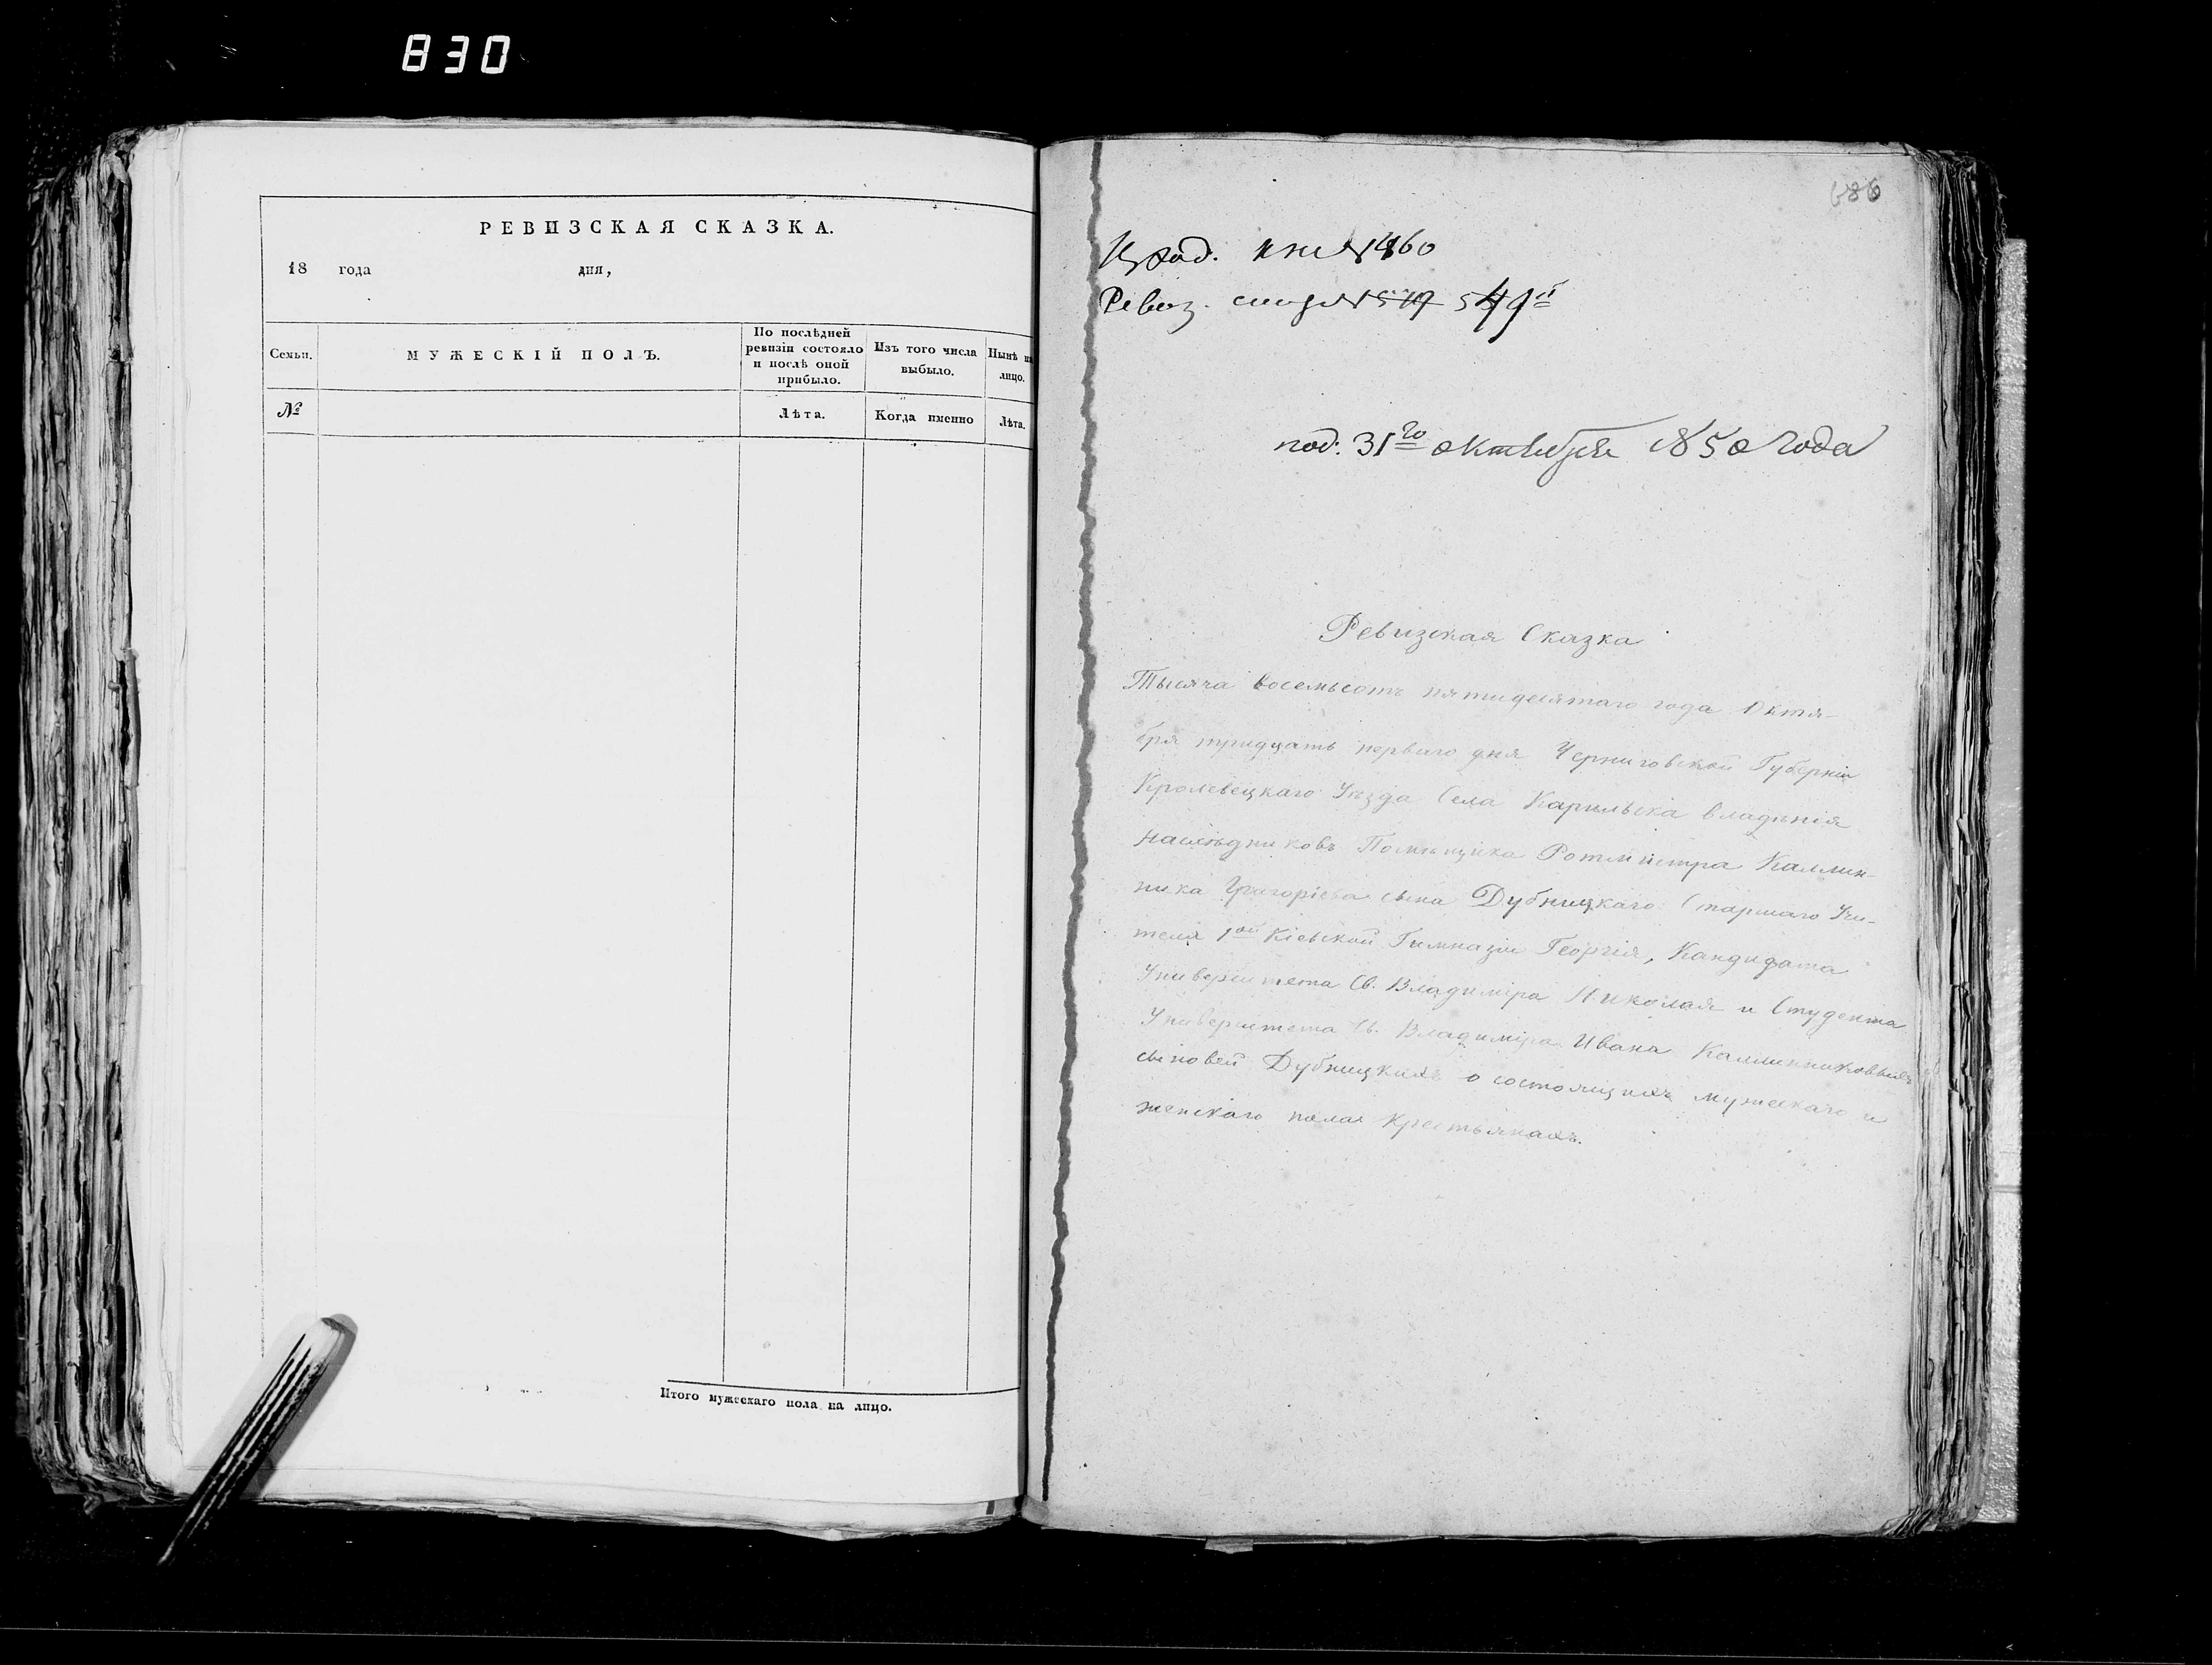 830
РЕВИЗСКАЯ СКАЗКА.
18 года дня,
Семьи. МУЖЕСКІЙ ПОЛЪ. По послѣдней ревизіи состояло и послѣ оной прибыло. Изъ того числа выбыло. Нынѣ на лицо.
№ Лѣта. Когда именно Лѣта.
Итого мужескаго пола на лицо.
686
Вход. кни № 1460
Ревиз. 549й
под: 31го октября 1850 года
Ревизская Сказка
Тысяча восемьсотъ пятидесятаго года Октя-
бря тридцать перваго дня Черниговской Губерніи
Кролевецкаго Уѣзда Села Карыльска владѣнія
наслѣдниковъ Помѣщика Ротмистра Каллин-
ника Григорьева сына Дубницкаго Старшаго Учи-
теля 1ой Кіевской Гимназіи Георгія, Кандидата
Университета Св. Владиміра Николая и Студента
Университета Св. Владиміра Ивана Каллинниковыхъ
сыновей Дубницкихъ о состоящихъ мужескаго и
женскаго пола Крестьянахъ.